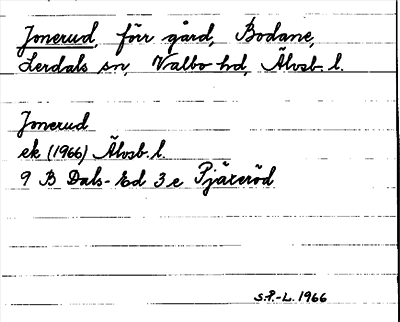 Jonerud, förr gård, Bodane,
Lerdals sn, Valbo hd, Älvsb. l.
Jonerud
ek (1966) Älvsb. l.
9 B Dals-Ed 3 e Pjäxeröd
S.P.-L. 1966